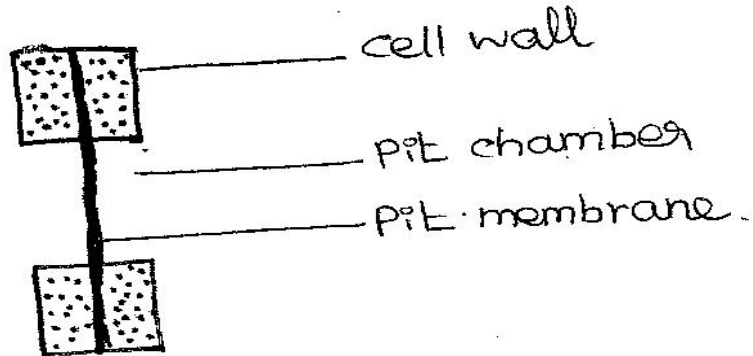 cell wall
pit chamber
pit membrane.